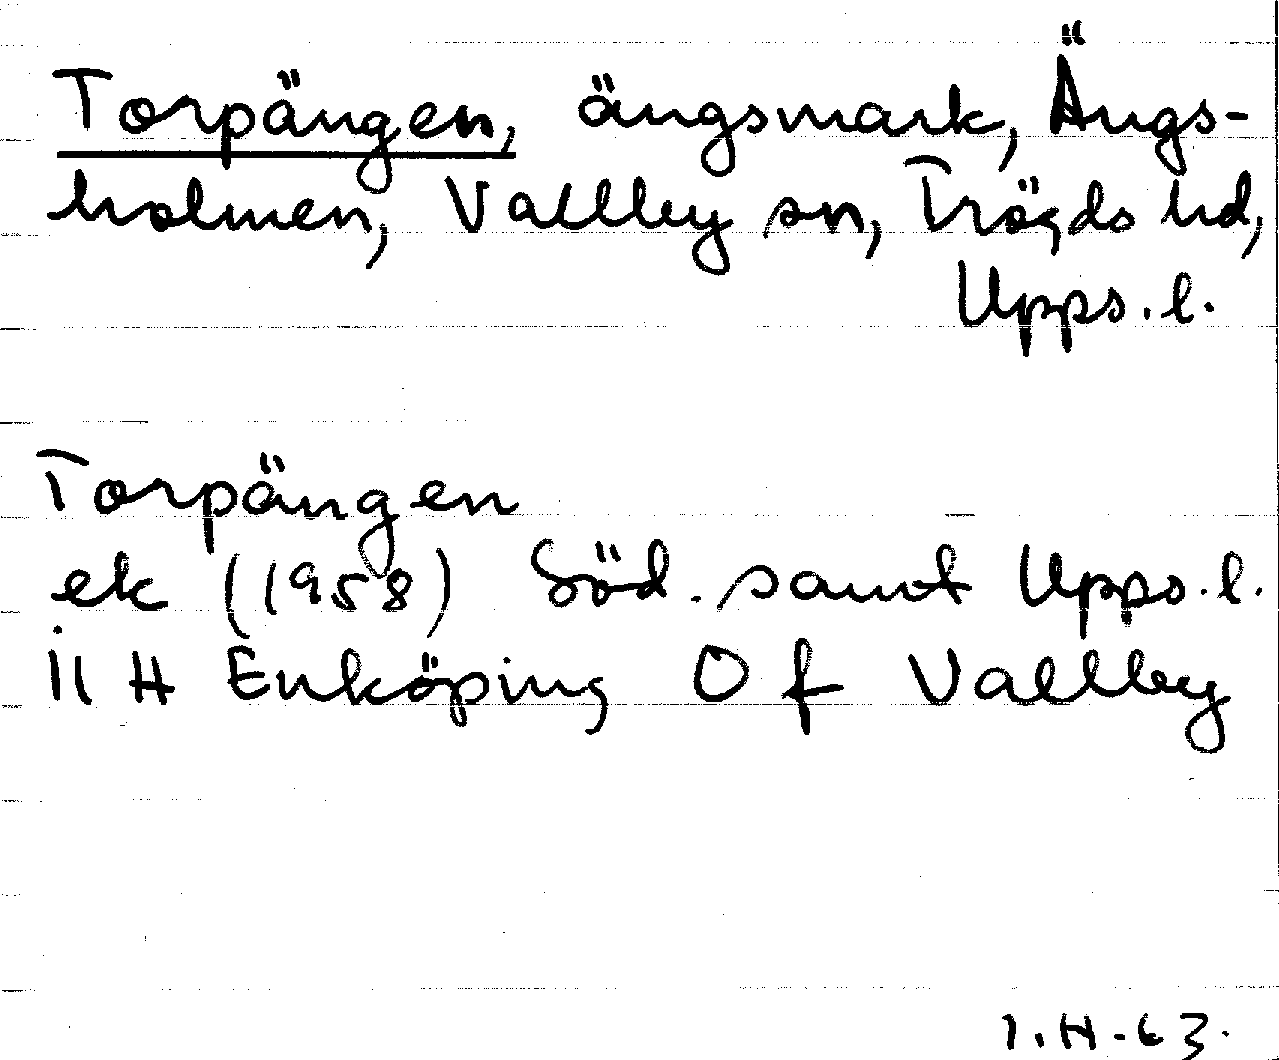 Torpängen, ängsmark, Ängs-
holmen, Vallby sn, Trögds hd,
Upps.l.
Torpängen
ek (1958) Söd. samt Upps.l.
11 H Enköping 0 f Vallby
I.H-63.